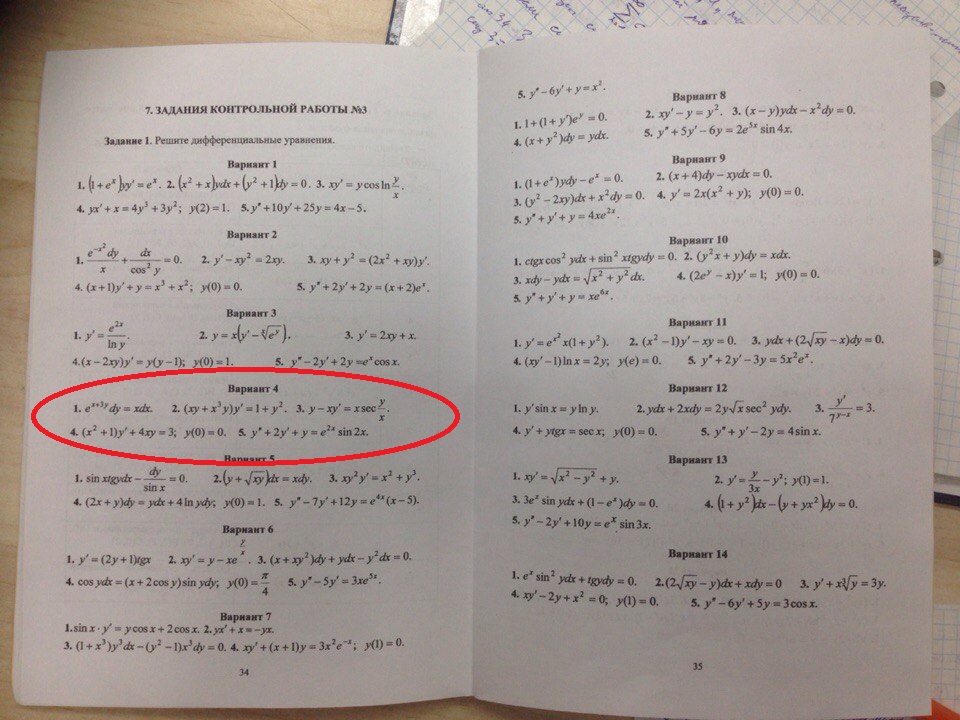 7. ЗАДАНИЯ КОНТРОЛЬНОЙ РАБОТЫ №3
Задание 1. Решите дифференциальные уравнения.
Вариант 1
1. (1+eˣ)yy′ = eˣ. 2. (x²+x)ydx+(y²+1)dy = 0. 3. xy′ = y cos ln y/x.
4. yx′+x = 4y³+3y²; y(2)=1. 5. y″+10y′+25y = 4x−5.
Вариант 2
1. e^(−x²)dy/x + dx/cos² y = 0. 2. y′−xy² = 2xy. 3. xy+y² = (2x²+xy)y′.
4. (x+1)y′+y = x³+x²; y(0)=0. 5. y″+2y′+2y = (x+2)eˣ.
Вариант 3
1. y′ = e^(2x)/ln y. 2. 3. y′ = 2xy+x.
4.(x−2xy)y′ = y(y−1); y(0)=1. 5. y″−2y′+2y = eˣ cos x.
Вариант 4
1. e^(x+3y)dy = xdx. 2. (xy+x³y)y′ = 1+y². 3. y−xy′ = x sec y/x.
4. (x²+1)y′+4xy = 3; y(0)=0. 5. y″+2y′+y = e^(2x) sin 2x.
Вариант 5
1. sin xtgydy − dy/sin x = 0. 2.(y+√xy)dx = xdy. 3. xy²y′ = x²+y³.
4. (2x+y)dy = ydx+4ln ydy; y(0)=1. 5. y″−7y′+12y = e^(4x)(x−5).
Вариант 6
1. y′ = (2y+1)tgx 2. xy′ = y−xe^(y/x). 3. (x+xy²)dy+ydx−y²dx = 0.
4. cos ydx = (x+2cos y)sin ydy; y(0)=π/4 5. y″−5y′ = 3xe^(5x).
Вариант 7
1.sin x·y′ = y cos x+2cos x. 2. yx′+x = −yx.
3. (1+x³)y³dx−(y²−1)x³dy = 0. 4. xy′+(x+1)y = 3x²e^(−x); y(1)=0.
34
5. y″−6y′+y = x².
Вариант 8
1. 1+(1+y′)e^y = 0. 2. xy′−y = y². 3. (x−y)ydx−x²dy = 0.
4. (x+y²)dy = ydx. 5. y″+5y′−6y = 2e^(5x) sin 4x.
Вариант 9
1. (1+eˣ)ydy−eˣ = 0. 2. (x+4)dy−xydx = 0.
3. (y²−2xy)dx+x²dy = 0. 4. y′ = 2x(x²+y); y(0)=0.
5. y″+y′+y = 4xe^(2x).
Вариант 10
1. ctgx cos² ydx+sin² xtgydy = 0. 2. (y²x+y)dy = xdy.
3. xdy−ydx = √(x²+y²)dx. 4. (2e^y−x)y′ = 1; y(0)=0.
5. y″+y′+y = xe^(6x).
Вариант 11
1. y′ = e^(x²)x(1+y²). 2. (x²−1)y′−xy = 0. 3. ydx+(2√xy−x)dy = 0.
4. (xy′−1)ln x = 2y; y(e)=0. 5. y″+2y′−3y = 5x²eˣ.
Вариант 12
1. y′sin x = y ln y. 2. 2ydx+2xdy = 2y√x sec² ydy. 3. y′/7^(y−x) = 3.
4. y′+ytgx = sec x; y(0)=0. 5. y″+y′−2y = 4sin x.
Вариант 13
1. xy′ = √(x²−y²)+y. 2. y′ = y/3x − y²; y(1)=1.
3. 3eˣ sin ydx+(1−eˣ)dy = 0. 4. (1+y²)dx−(y+yx²)dy = 0.
5. y″−2y′+10y = eˣ sin 3x.
Вариант 14
1. eˣ sin² ydx+tgydy = 0. 2.(2√xy−y)dx+xdy = 0 3. y′+x∛y = 3y.
4. xy′−2y+x² = 0; y(1)=0. 5. y″−6y′+5y = 3cos x.
35